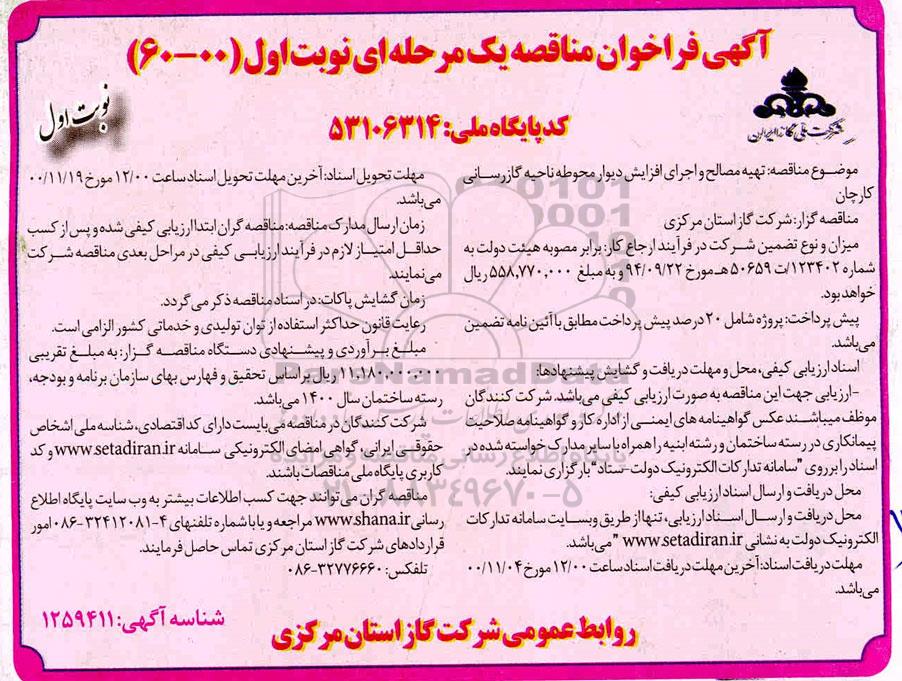 آگهی فراخوان مناقصه یک مرحله ای نوبت اول (۰۰-۶۰)
نوبت اول
شرکت ملی گاز ایران
کد پایگاه ملی: ۵۳۱۰۶۳۱۴
موضوع مناقصه: تهیه مصالح و اجرای افزایش دیوار محوطه ناحیه گازرسانی
کارچان
مناقصه گزار: شرکت گاز استان مرکزی
میزان و نوع تضمین شرکت در فرآیند ارجاع کار: برابر مصوبه هیئت دولت به
شماره ۱۲۳۴۰۲/ت ۵۰۶۵۹ هـ مورخ ۹۴/۰۹/۲۲ و به مبلغ ۵۵۸,۷۷۰,۰۰۰ ریال
خواهد بود.
پیش پرداخت: پروژه شامل ۲۰ درصد پیش پرداخت مطابق با آئین نامه تضمین
می‌باشد.
اسناد ارزیابی کیفی، محل و مهلت دریافت و گشایش پیشنهادها:
-ارزیابی جهت این مناقصه به صورت ارزیابی کیفی می‌باشد. شرکت کنندگان
موظف میباشند عکس گواهینامه های ایمنی از اداره کار و گواهینامه صلاحیت
پیمانکاری در رسته ساختمان و رشته ابنیه را همراه با سایر مدارک خواسته شده در
اسناد را بر روی "سامانه تدارکات الکترونیک دولت-ستاد" بارگزاری نمایند.
محل دریافت و ارسال اسناد ارزیابی کیفی:
محل دریافت و ارسال اسناد ارزیابی، تنها از طریق وبسایت سامانه تدارکات
الکترونیک دولت به نشانی www.setadiran.ir "می‌باشد.
مهلت دریافت اسناد: آخرین مهلت دریافت اسناد ساعت ۱۲/۰۰ مورخ ۰۰/۱۱/۰۴
می‌باشد.
مهلت تحویل اسناد: آخرین مهلت تحویل اسناد ساعت ۱۲/۰۰ مورخ ۰۰/۱۱/۱۹
می‌باشد.
زمان ارسال مدارک مناقصه: مناقصه گران ابتدا ارزیابی کیفی شده و پس از کسب
حداقل امتیاز لازم در فرآیند ارزیابی کیفی در مراحل بعدی مناقصه شرکت
می‌نمایند.
زمان گشایش پاکات: در اسناد مناقصه ذکر می گردد.
رعایت قانون حداکثر استفاده از توان تولیدی و خدماتی کشور الزامی است.
مبلغ برآوردی و پیشنهادی دستگاه مناقصه گزار: به مبلغ تقریبی
۱۱,۱۸۰,۰۰۰,۰۰۰ ریال بر اساس تحقیق و فهارس بهای سازمان برنامه و بودجه،
رسته ساختمان سال ۱۴۰۰ می‌باشد.
شرکت کنندگان در مناقصه می‌بایست دارای کد اقتصادی، شناسه ملی اشخاص
حقوقی ایرانی، گواهی امضای الکترونیکی سامانه www.setadiran.ir و کد
کاربری پایگاه ملی مناقصات باشند.
مناقصه گران می‌توانند جهت کسب اطلاعات بیشتر به وب سایت پایگاه اطلاع
رسانی www.shana.ir مراجعه و یا با شماره تلفنهای ۴-۳۲۴۱۲۰۸۱-۰۸۶ امور
قراردادهای شرکت گاز استان مرکزی تماس حاصل فرمایند.
تلفکس: ۳۲۷۷۶۶۶۰-۰۸۶
شناسه آگهی: ۱۲۵۹۴۱۱
روابط عمومی شرکت گاز استان مرکزی
ParsNamadData
۰۲۱-۸۸۳۴۹۶۷۰-۵